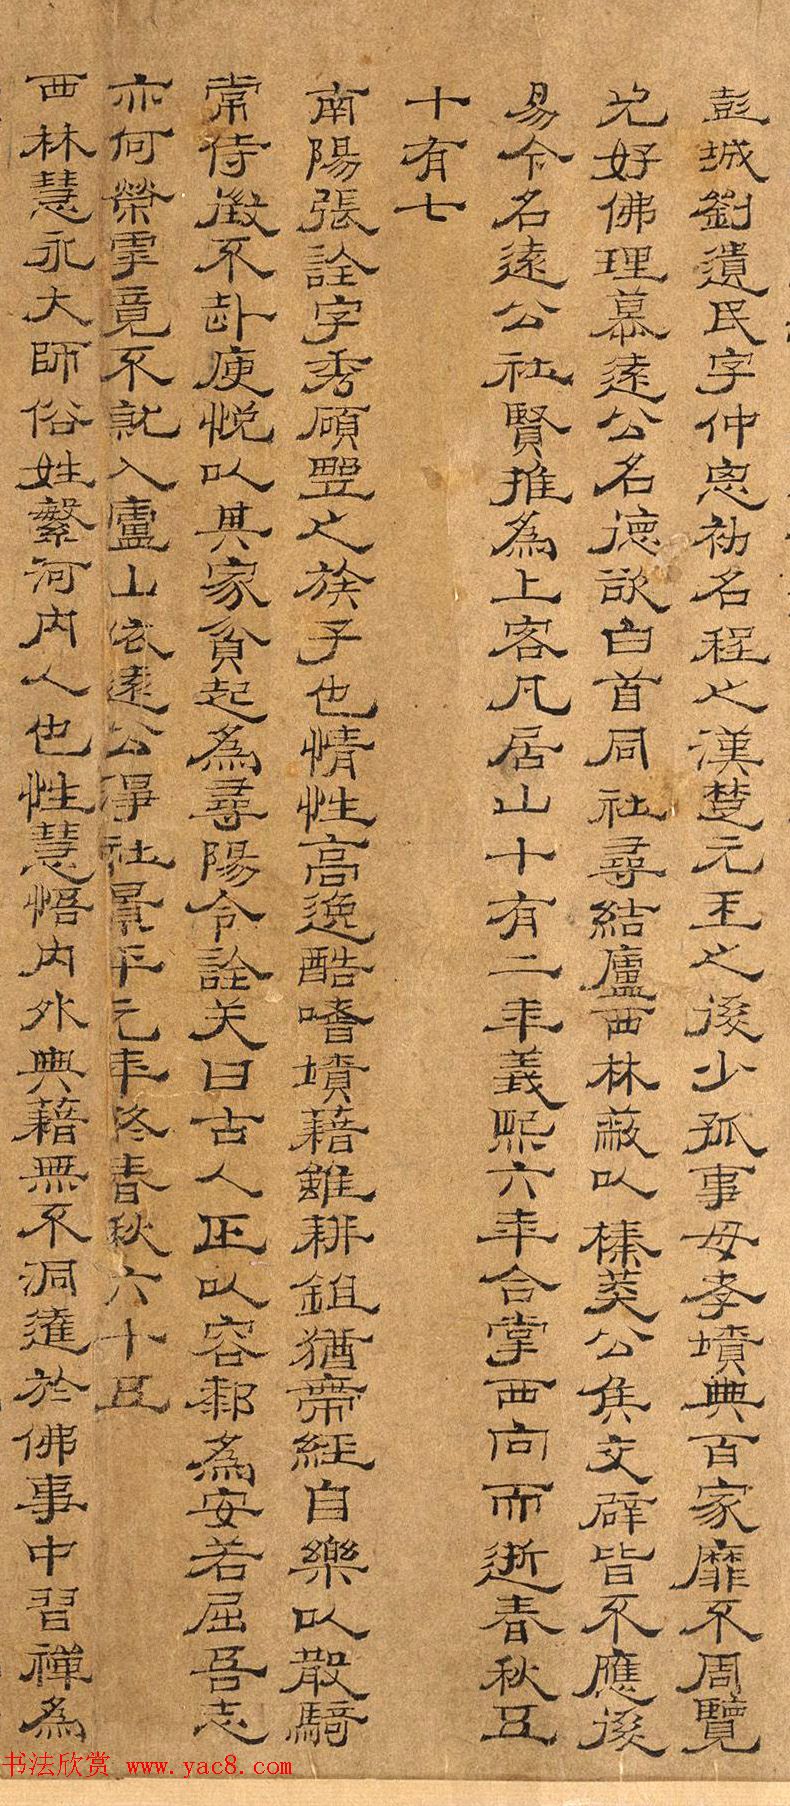 彭城劉遺民字仲思初名程之漢楚元王之後少孤事母孝墳典百家靡不周覽
尤好佛理慕遠公名德欲白首同社尋結廬西林蔽以榛茭公侯交辟皆不應後
易今名遠公社賢推為上客凡居山十有二年義熙六年合掌西向而逝春秋五
十有七
南陽張詮字秀碩野之族子也情性高逸酷嗜墳藉雖耕鉏猶帶經自樂以散騎
常侍徵不赴庾悅以其家貧起為尋陽令詮笑曰古人正以容膝為安若屈吾志
亦何榮乎竟不就入廬山依遠公淨社景平元年終春秋六十五
西林慧永大師俗姓繁河內人也性慧悟內外典藉無不洞達於佛事中習禪為
书法欣赏 www.yac8.com